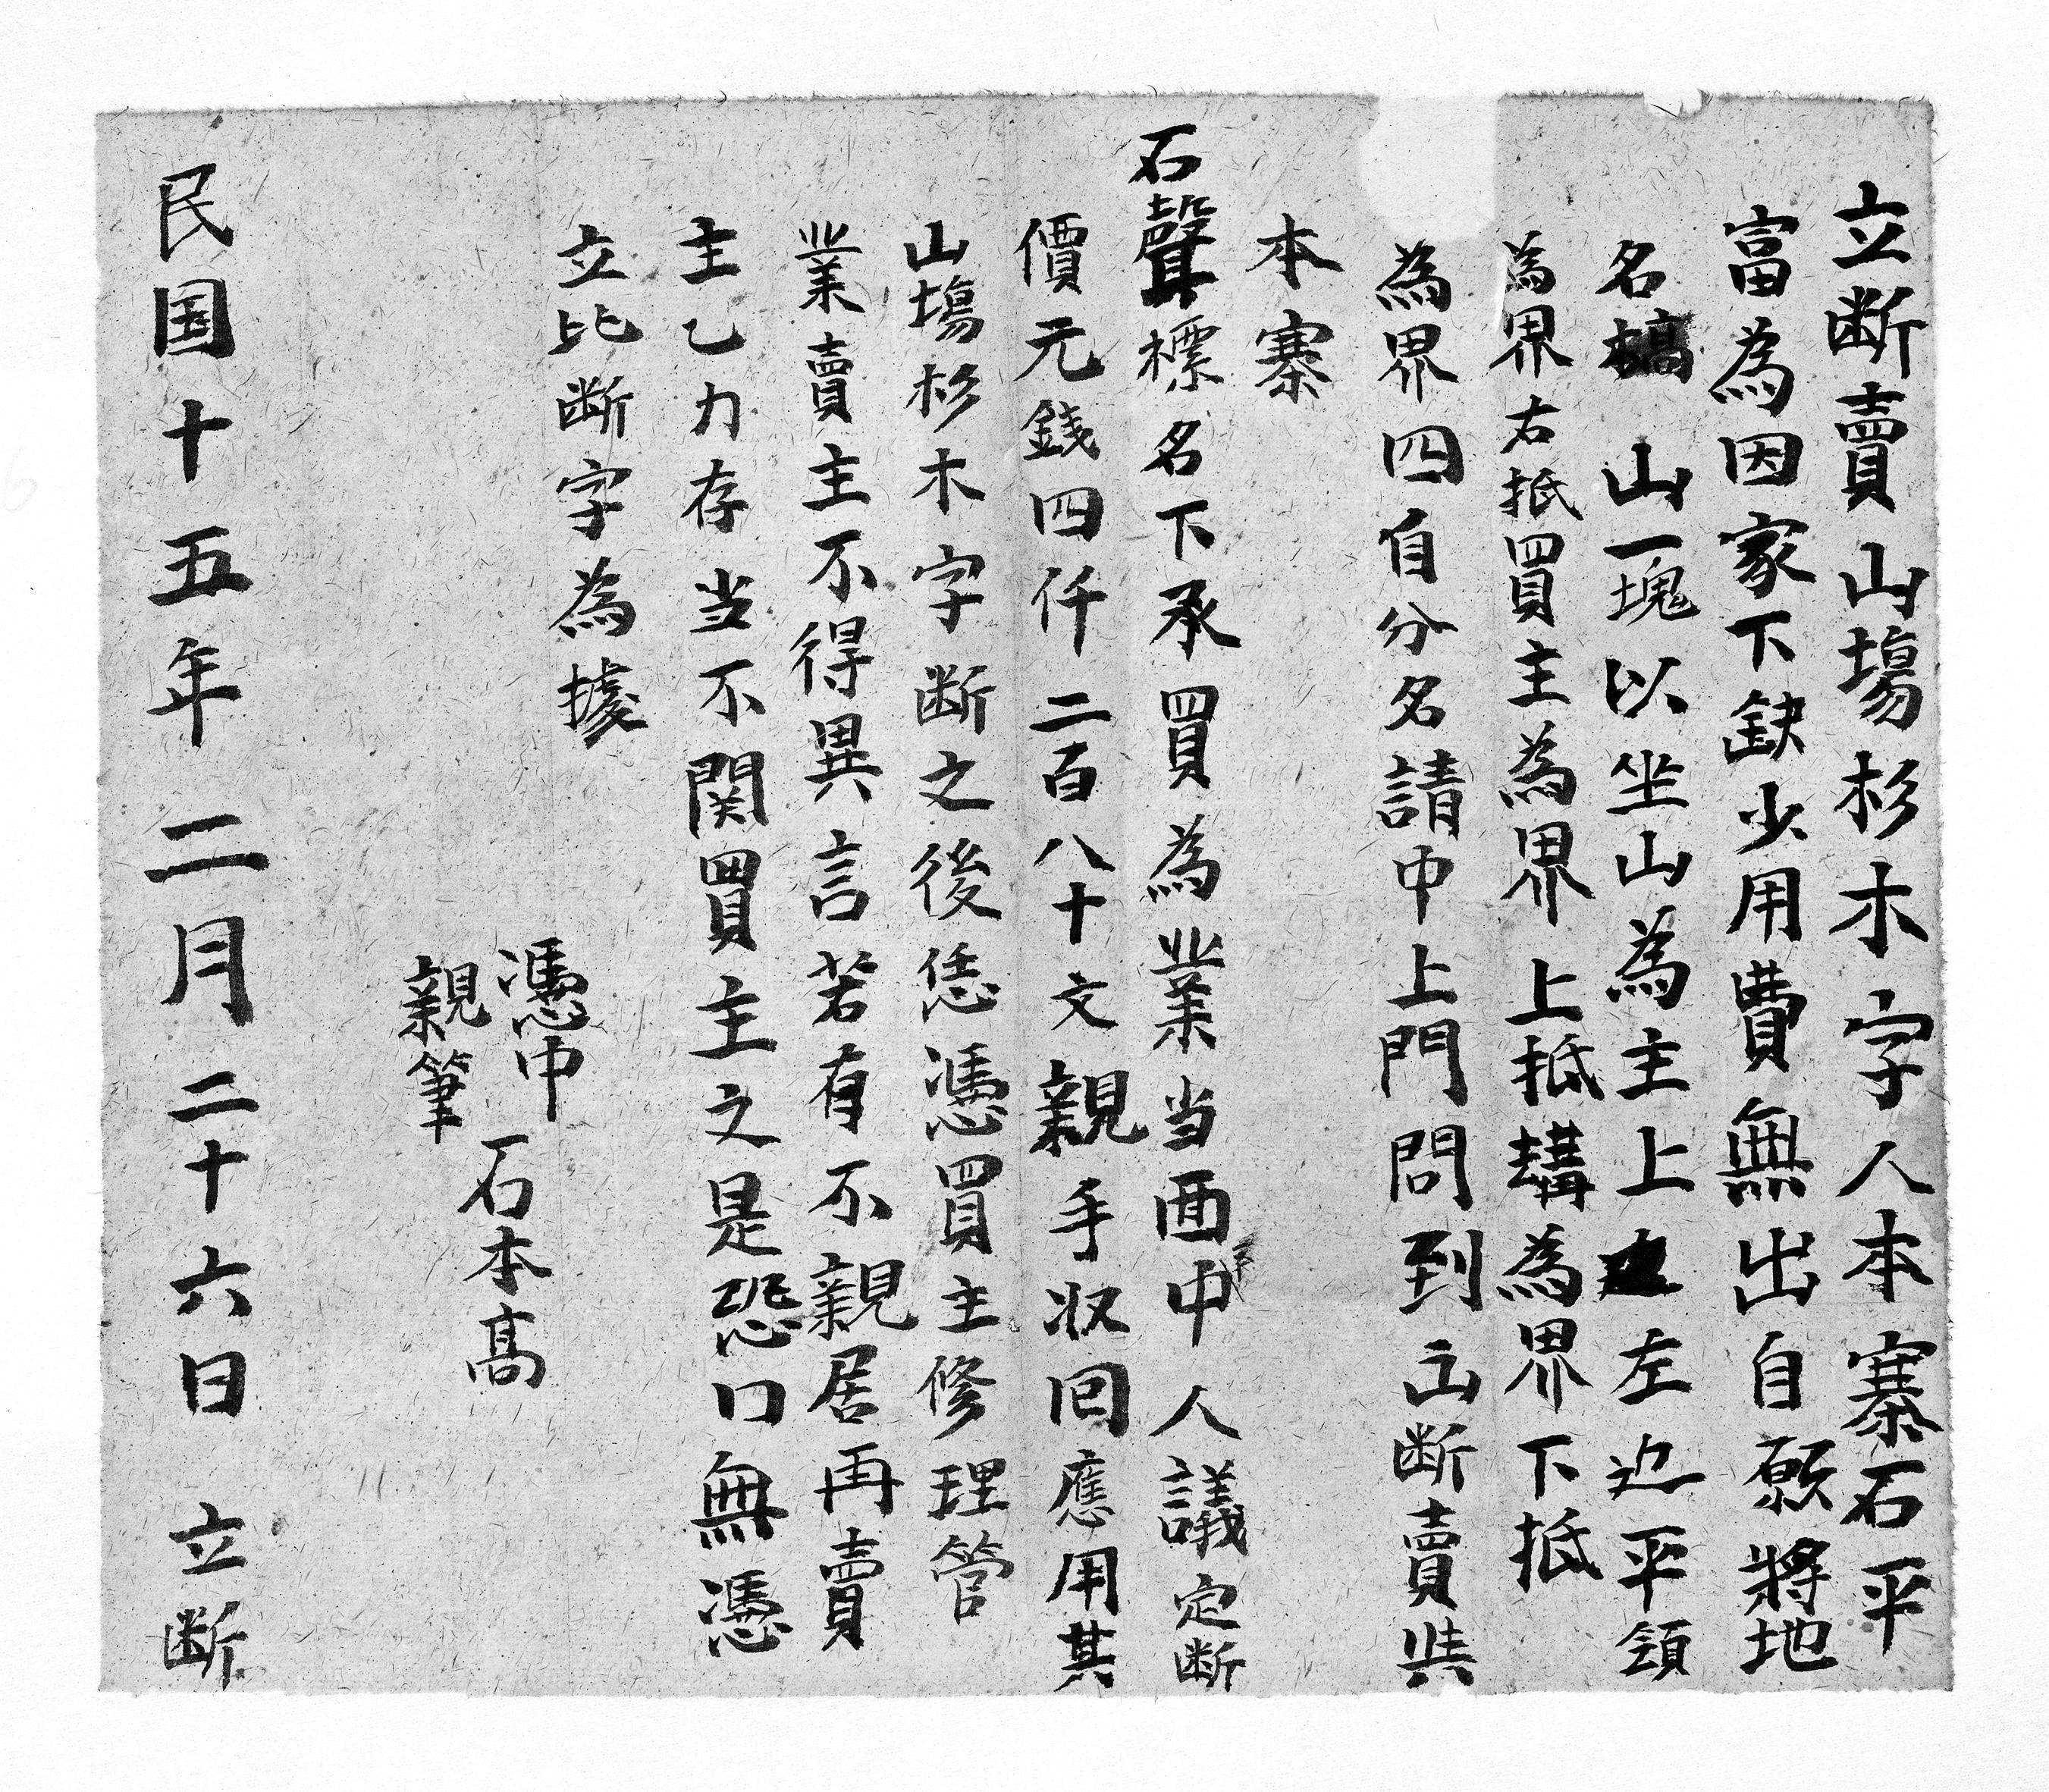 立断賣山塲杉木字人本寨石平
富為因家下缺少用費無出自愿將地
名槁山一塊以坐山為主上左边平領
為界右抵買主為界上抵講為界下抵
為界四自分名請中上門問到立断賣與
本寨
石聲標名下承買為業当面中人議定断
價元錢四仟二百八十文親手収囘應用其
山塲杉木字断之後恁憑買主修理管
業賣主不得異言若有不親居再賣
主乙力存当不関買主之是恐口無憑
立比断字為據
憑中 石本高
親筆
民国十五年二月二十六日 立断